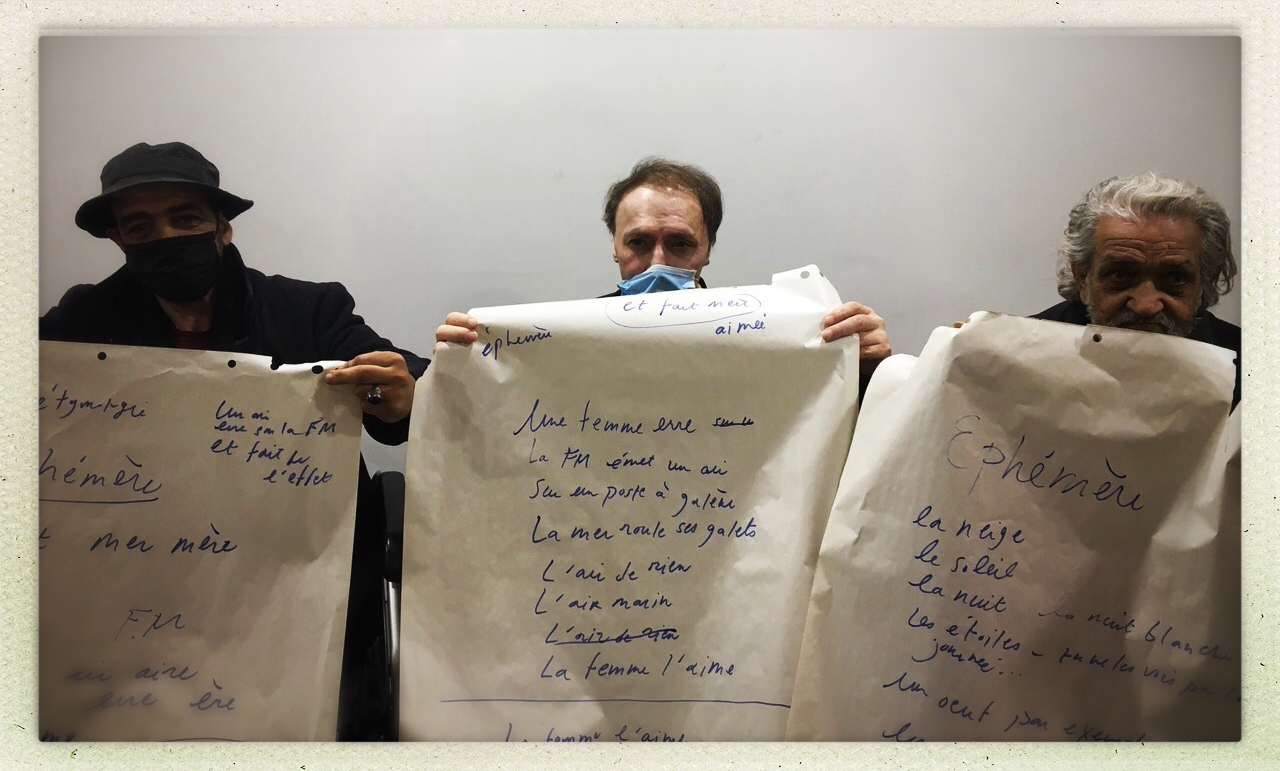 Un air
erre sur la FM
et fait de
l'effet
hémère
mer mère
F.M
air aire
erre ère
et fait mère
éphémère
aimée
Une femme erre
La FM émet un air
Sur un poste à galène
La mer roule ses galets
L'air de rien
L'air marin
L'air de rien
La femme l'aime
La femme l'aime
Éphémère
la neige
le soleil
la nuit la nuit blanche
Les étoiles - tu ne les vois pas
journée...
Un oeuf par exemple